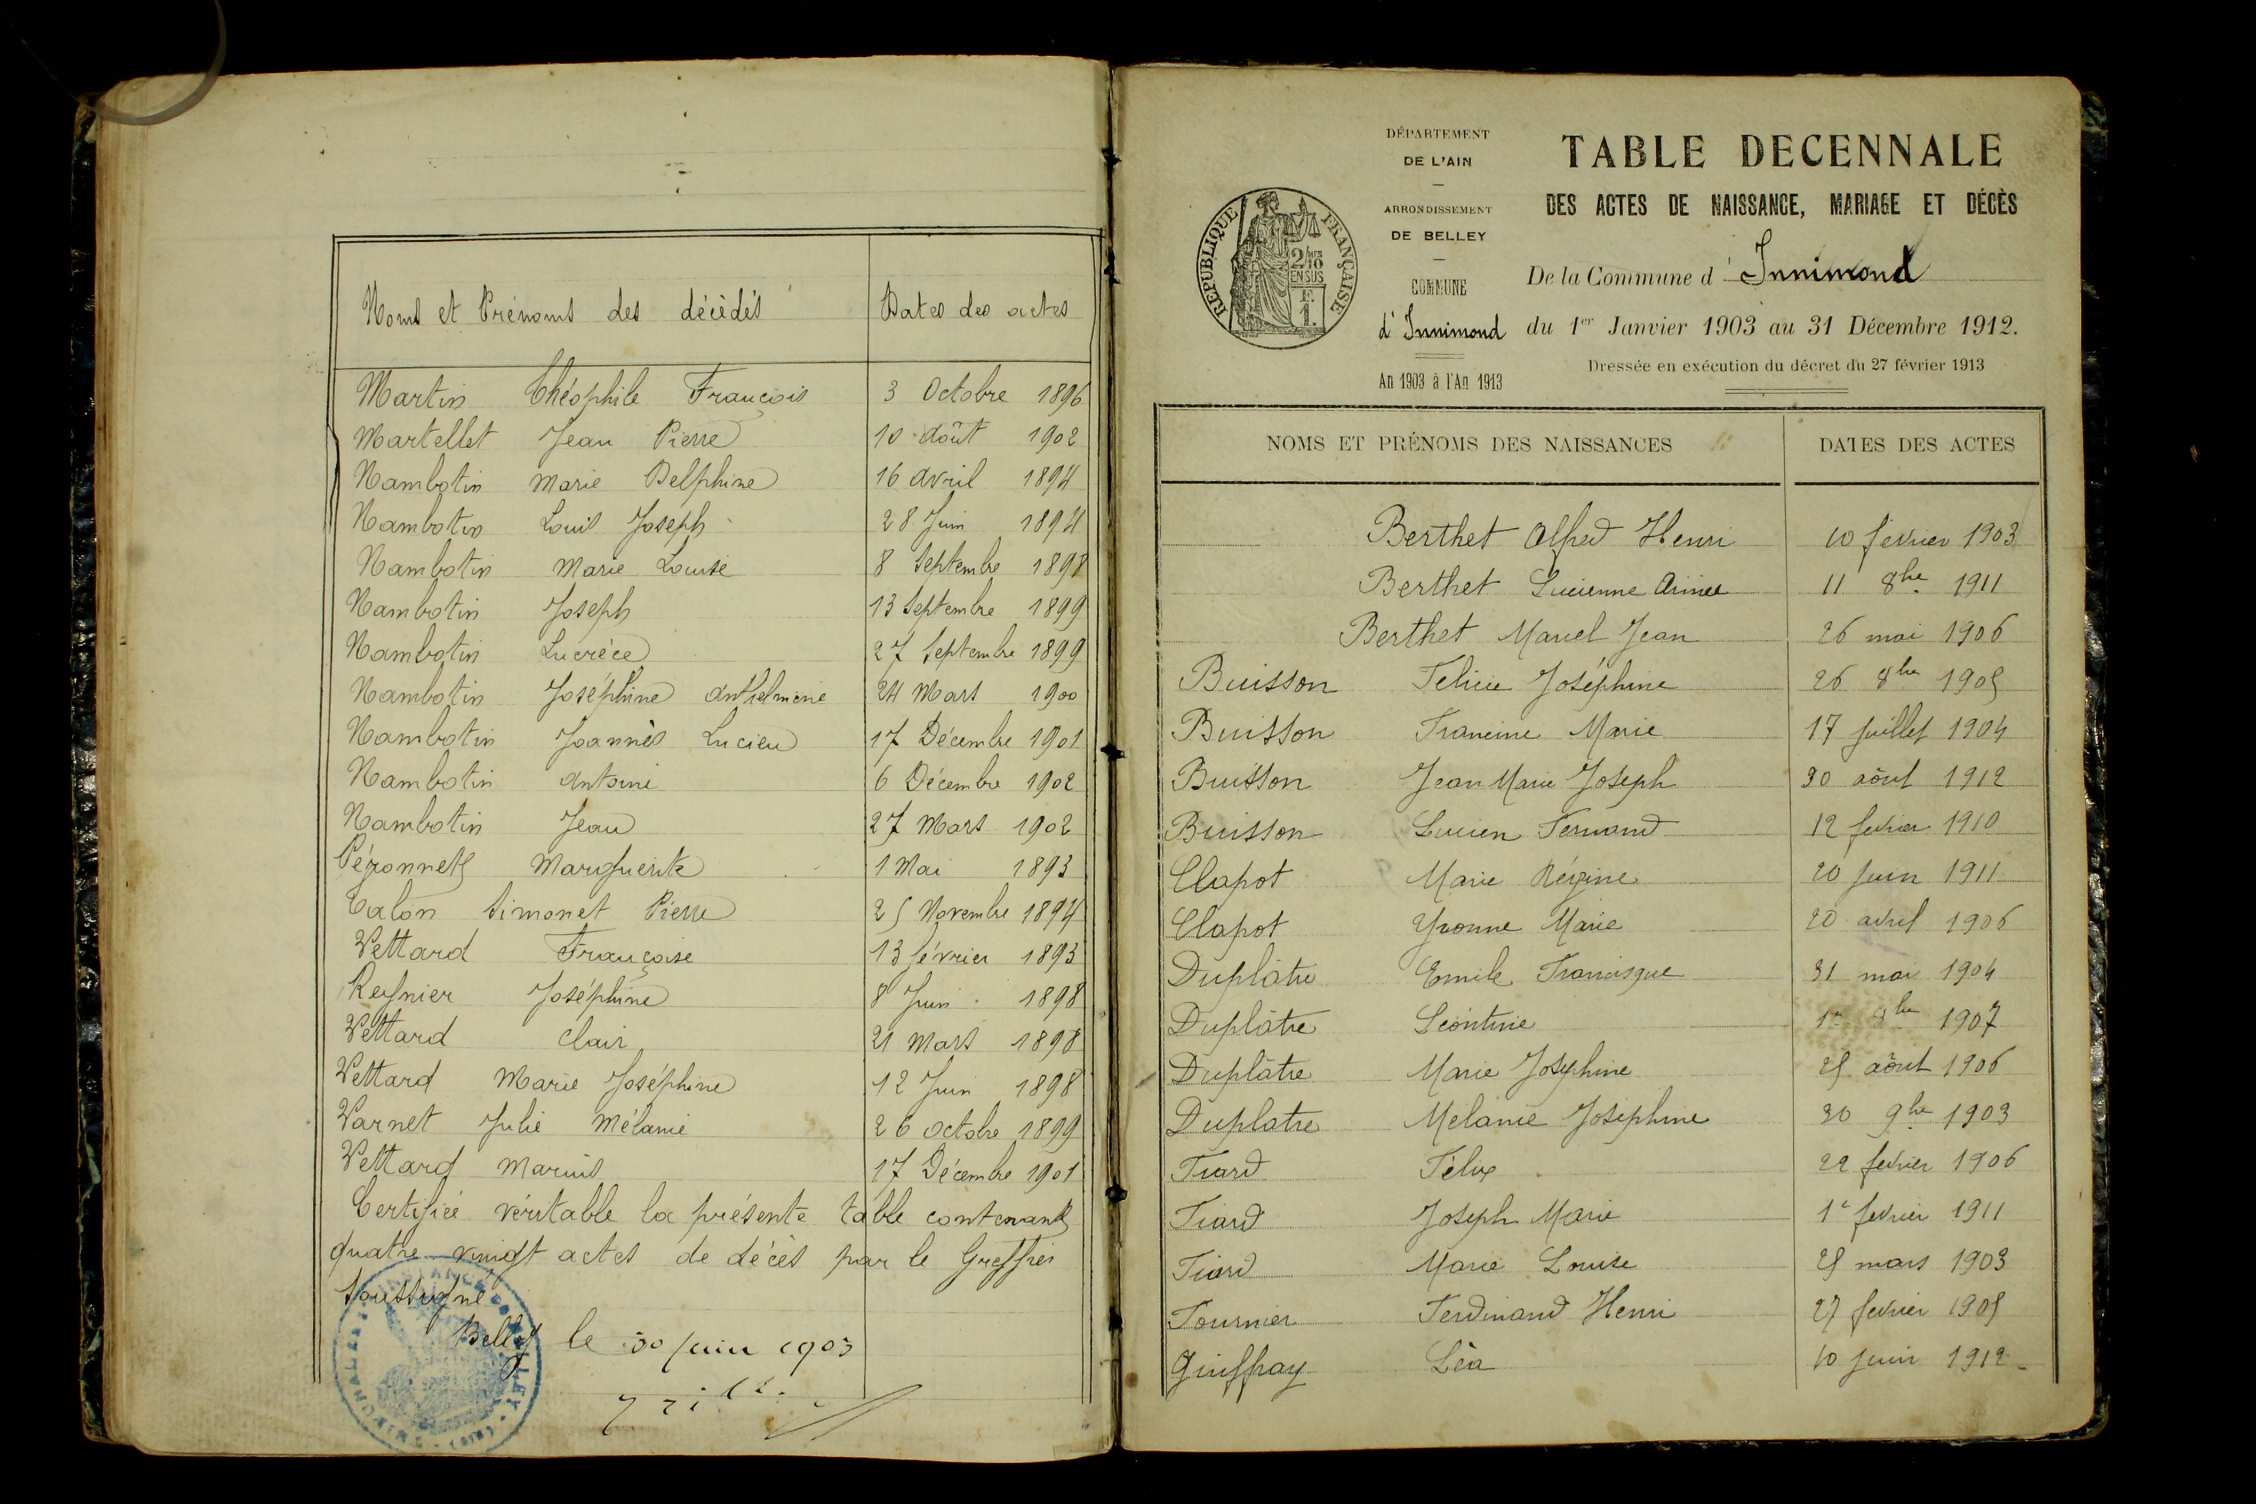 Noms et Prénoms des décédés Dates des actes
Martin Théophile François 3 Octobre 1896
Martellet Jean Pierre 10 Août 1902
Nambotin Marie Delphine 16 avril 1894
Nambotin Louis Joseph 28 Juin 1894
Nambotin Marie Louise 8 Septembre 1898
Nambotin Joseph 13 Septembre 1899
Nambotin Lucrèce 27 Septembre 1899
Nambotin Joséphine Anthelmene 24 Mars 1900
Nambotin Joannès Lucien 17 Décembre 1901
Nambotin Antoine 6 Décembre 1902
Nambotin Jean 27 Mars 1902
Marguerite 1 Mai 1893
Talon Simonet Pierre 25 Novembre 1894
Vettard Françoise 13 février 1893
Reynier Joséphine 8 Juin 1898
Vettard Clair 21 Mars 1898
Vettard Marie Joséphine 12 Juin 1898
Varnet Julie Mélanie 26 octobre 1899
Vettard Marius 17 Décembre 1901
Certifiée véritable la présente table contenant
quatre-vingt actes de décès par le Greffier
soussigné
Belley le 30 juin 1903
DÉPARTEMENT
DE L'AIN
ARRONDISSEMENT
DE BELLEY
COMMUNE
d'Innimond
An 1903 à l'An 1913
RÉPUBLIQUE FRANÇAISE
2/10
EN SUS
F.
1.
TABLE DECENNALE
DES ACTES DE NAISSANCE, MARIAGE ET DÉCÈS
De la Commune d'Innimond
du 1er Janvier 1903 au 31 Décembre 1912.
Dressée en exécution du décret du 27 février 1913
NOMS ET PRÉNOMS DES NAISSANCES DATES DES ACTES
Berthet Alfred Henri 10 février 1903
Berthet Lucienne Aimée 11 8bre 1911
Berthet Marcel Jean 26 mai 1906
Buisson Félicie Joséphine 26 8bre 1905
Buisson Francine Marie 17 juillet 1904
Buisson Jean Marie Joseph 30 août 1912
Buisson Lucien Fernand 12 fevrier 1910
Clapot Marie Régine 20 juin 1911
Clapot Yvonne Marie 20 avril 1906
Duplâtre Emile Francisque 31 mai 1904
Duplâtre Léontine 1907
Duplâtre Marie Josephine 25 août 1906
Duplatre Mélanie Joséphine 30 9bre 1903
Tiard Félix 22 fevrier 1906
Tiard Joseph Marie 1er fevrier 1911
Tiard Marie Louise 25 mars 1903
Tournier Ferdinand Henri 27 fevrier 1905
Giuffray Léa 10 juin 1912